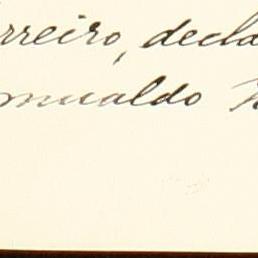 rreiro, decla
omualdo